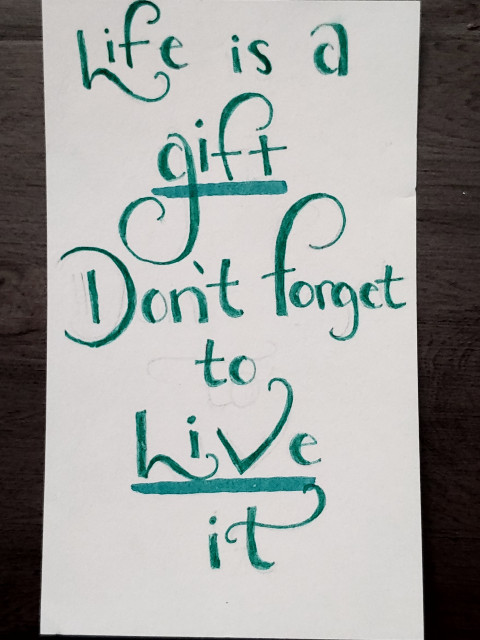 Life is a
gift
Don't forget
to
Live
it